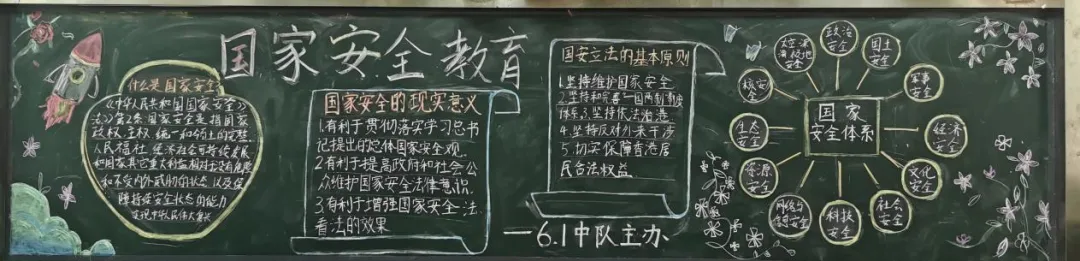 国家安全教育
什么是国家安全
《中华人民共和国国家安全
法》第2条国家安全是指国家
政权、主权、统一和领土的完整
人民福祉、经济社会可持续发展
和国家其它重大利益相对于没有危险
和不受内外威胁的状态,以及保
障持续安全状态的能力
国家安全的现实意义
1.有利于贯彻落实学习总书
记提出的总体国家安全观.
2.有利于提高政府和社会公
众维护国家安全法律意识.
3.有利于增强国家安全法.
看法的效果
国安立法的基本原则
1.坚持维护国家安全
2.坚持和完善一国两制制度
体系3.坚持依法治港
4.坚持反对外来干涉
5.切实保障香港居
民合法权益
一6.1中队主办
国家
安全体系
政治
安全
国土
安全
军事
安全
经济
安全
文化
安全
社会
安全
科技
安全
网络与
安全
资源
安全
生态
安全
核安
全
安全